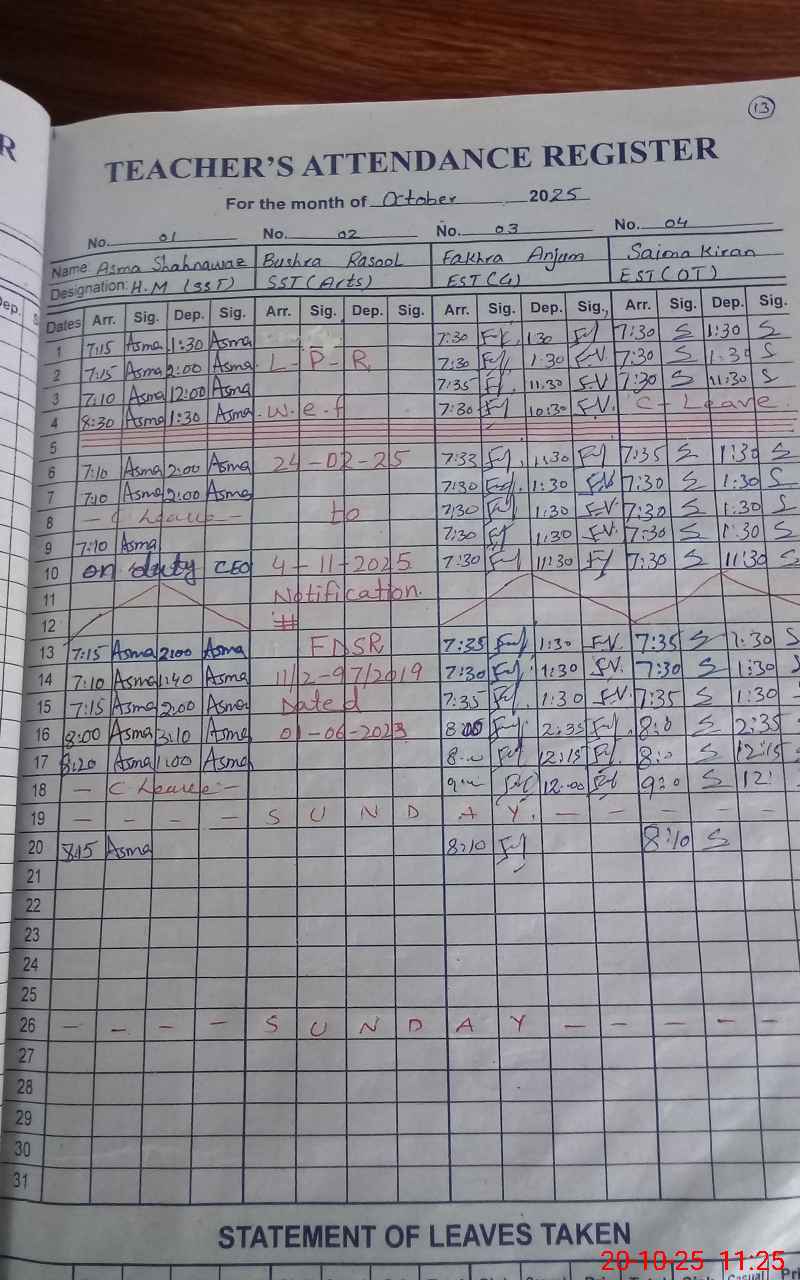 13
TEACHER'S ATTENDANCE REGISTER
For the month of October 2025
No. 01 No. 02 No. 03 No. 04
Name: Asma Shahnawaz Bushra Rasool Fakhra Anjum Saima Kiran
Designation: H.M (SST) SST (Arts) EST (G) EST (OT)
Dates Arr. Sig. Dep. Sig. Arr. Sig. Dep. Sig. Arr. Sig. Dep. Sig. Arr. Sig. Dep. Sig.
1 7:15 Asma 1:30 Asma 7:30 1:30 7:30 S 1:30 S
2 7:15 Asma 2:00 Asma L-P-R 7:30 1:30 7:30 S 1:30 S
3 7:10 Asma 12:00 Asma 7:35 11:30 7:30 S 11:30 S
4 8:30 Asma 1:30 Asma w.e.f 7:30 10:30 C-Leave
5
6 7:10 Asma 2:00 Asma 24-02-25 7:33 1:30 7:35 S 1:30 S
7 7:10 Asma 2:00 Asma 7:30 1:30 7:30 S 1:30 S
8 - C Leave - to 7:30 1:30 7:30 S 1:30 S
9 7:10 Asma 7:30 1:30 7:30 S 1:30 S
10 on duty CEO 4-11-2025 7:30 11:30 7:30 S 11:30 S
11 Notification
12 #
13 7:15 Asma 2:00 Asma 7:35 1:30 7:35 S 1:30 S
14 7:10 Asma 1:40 Asma 11/2-97/2019 7:30 1:30 7:30 S 1:30
15 7:15 Asma 2:00 Asma Dated 7:35 1:30 7:35 S 1:30
16 8:00 Asma 3:10 Asma 01-06-2023 8:00 2:35 8:0 S 2:35
17 8:20 Asma 1:00 Asma 12:15 8:0 S 12:15
18 - C Leave - 12:00 9:0 S 12:
19 - - - - S U N D A Y - - - - - -
20 8:15 Asma 8:10 8:10 S
21
22
23
24
25
26 - - - - S U N D A Y - - - - - -
27
28
29
30
31
STATEMENT OF LEAVES TAKEN
20-10-25 11:25